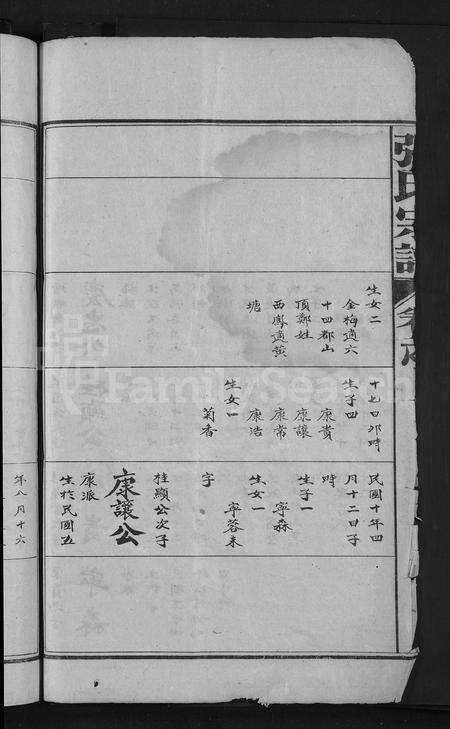 張氏宗譜
生女二
金梅適六
十四都山
頂鄭姓
西鳳適黃
塘
十七日卯時
生子四
康貴
康讓
康常
康浩
生女一
菊香
民國十年四
月十二日子
時
生子一
寧森
生女一
寧蓉未
字
桂顯公次子
康讓公
康派
生於民國五
年八月十六
FamilySearch